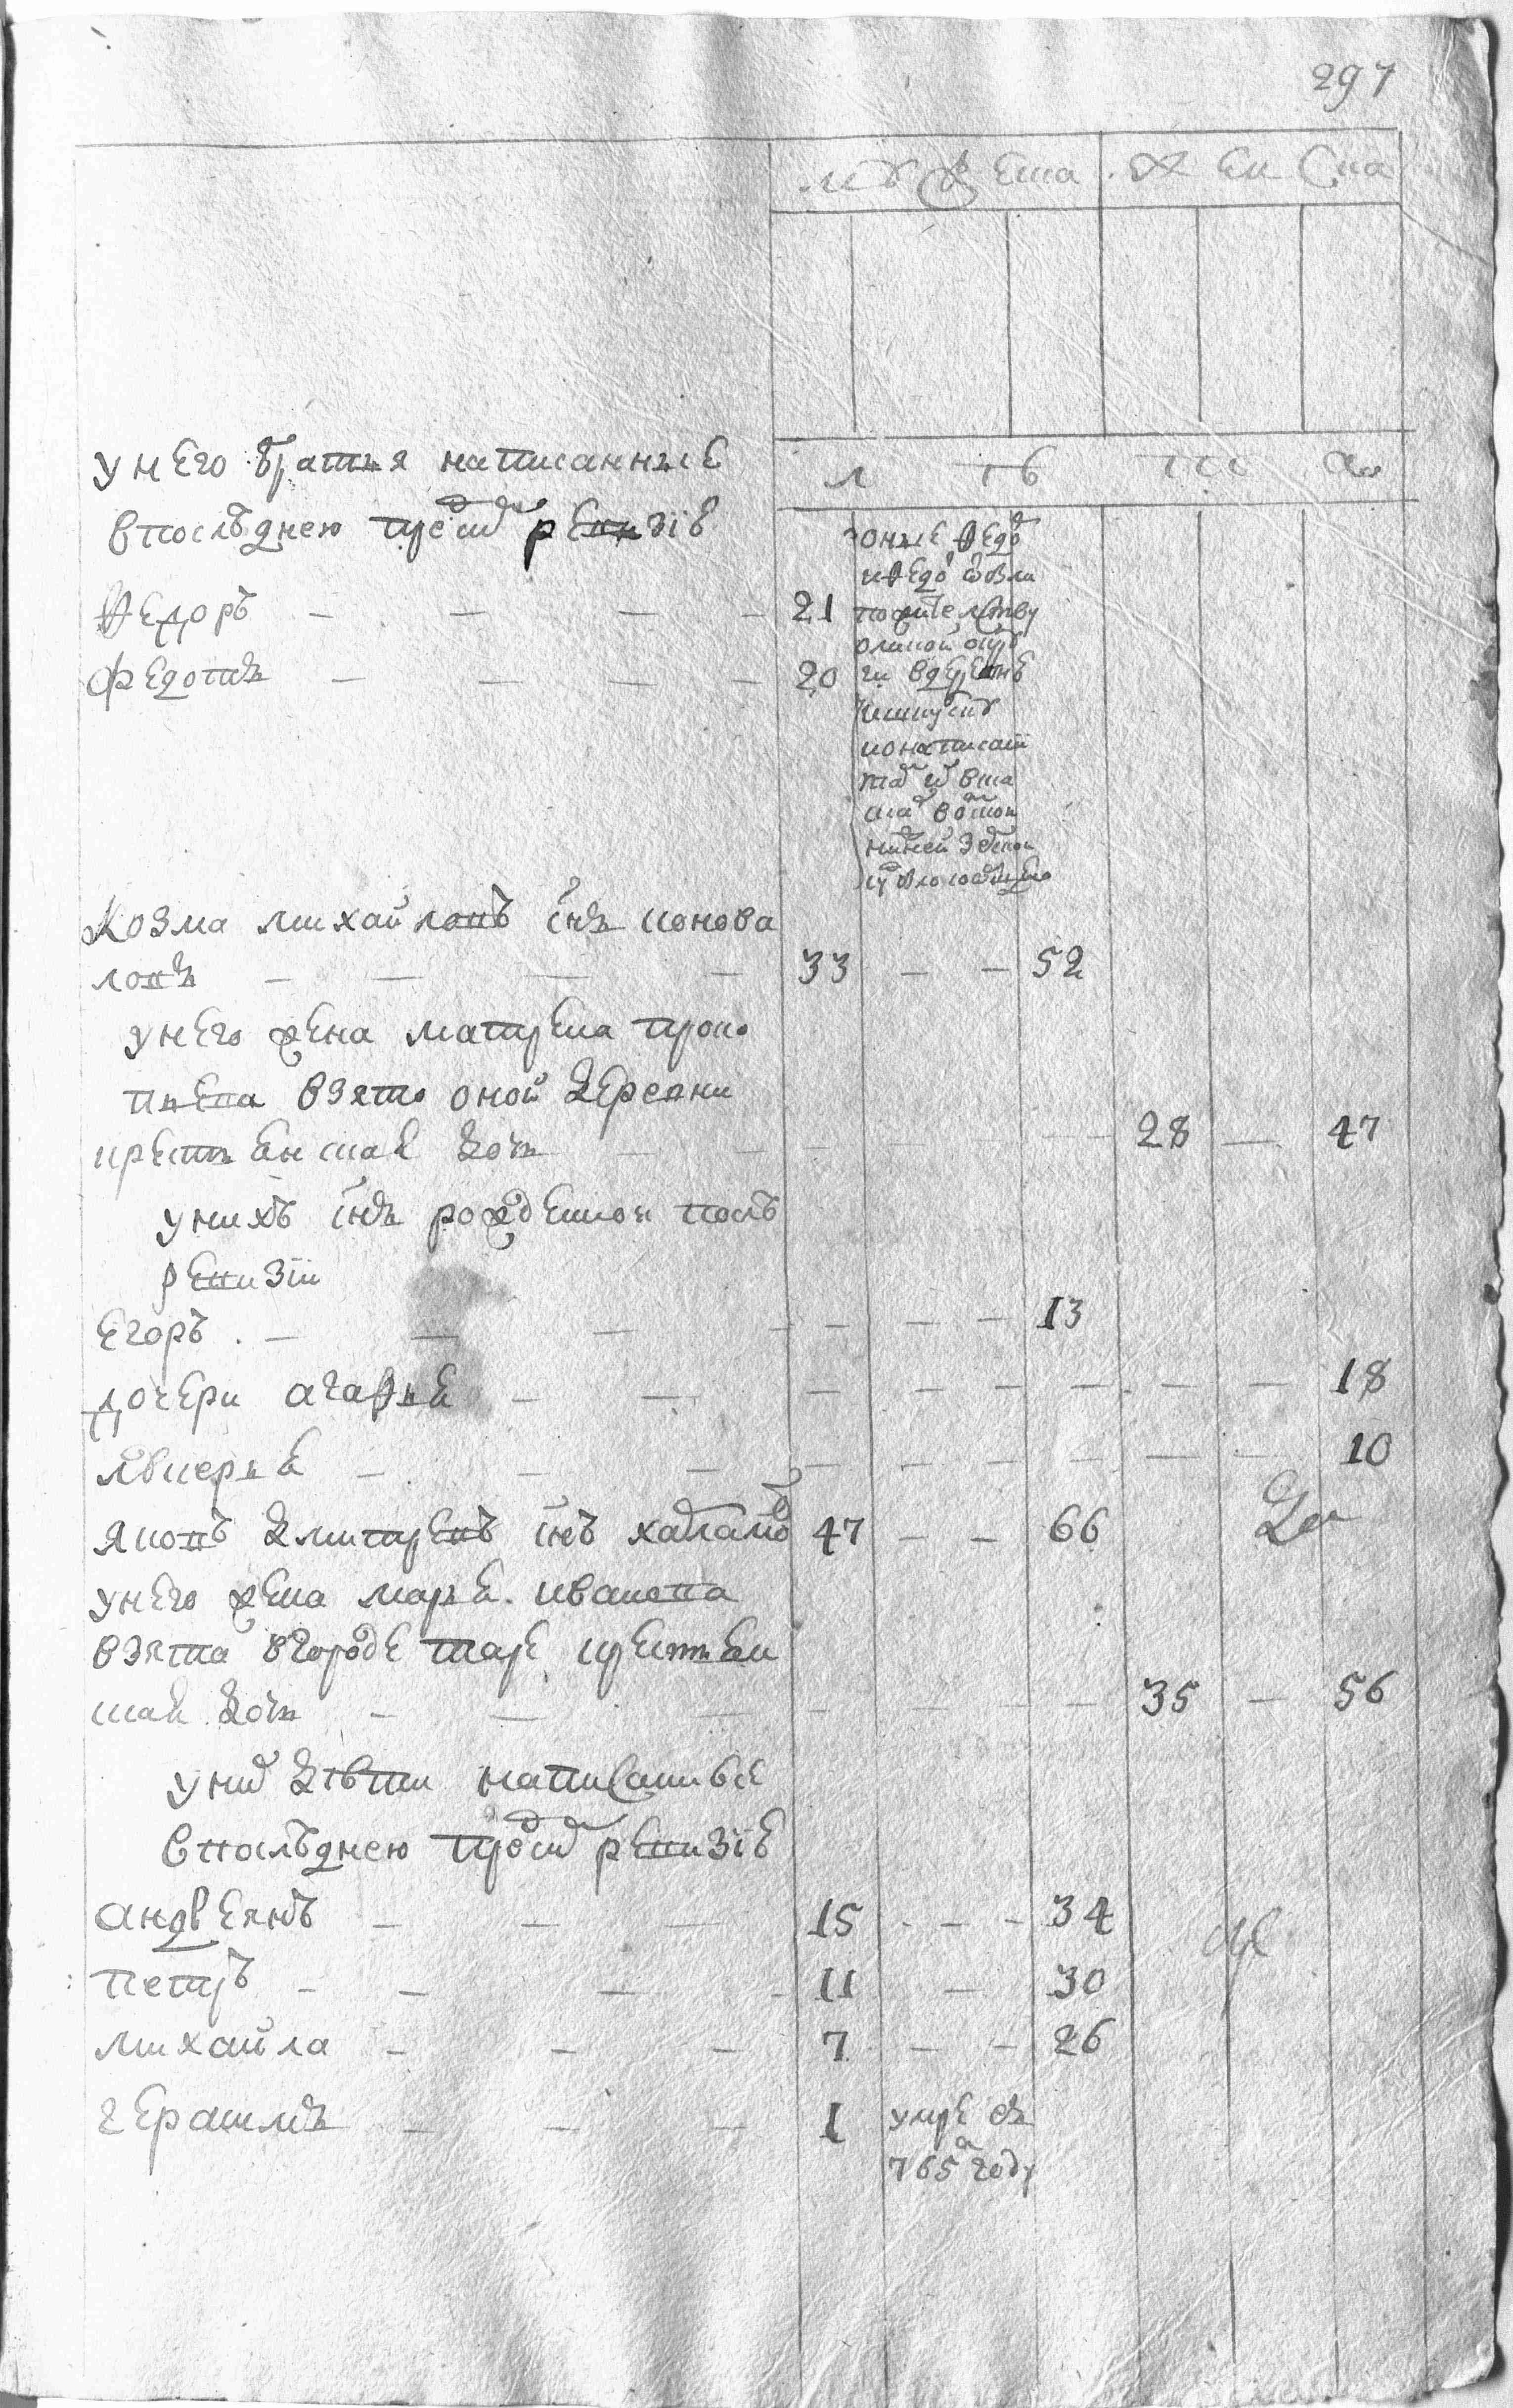 297
мужеска женска
л ѣ та
у него братья написанные
в последнею пред сим ревизiе
Федоръ — — — — 21
Федотъ — — — — 20
оные Федо
и Федо
по жительству
оной окру
ги в деревне
и написан
Козма михайловъ снъ конова
ловъ — — — — 33 — — 52
у него жена матрена проко
пьева взята оной деревни
крестьянская дочь — — 28 — 47
у нихъ снъ рожденной после
ревизiи
Егоръ — — — — — — — 13
дочери агафья — — — — — — — — 18
лукерья — — — — — — — — 10
Яковъ дмитревъ снъ 47 — — 66
у него жена марья иванова
взята в городе таре крестьян
ская дочь — — — — — — 35 — 56
у них дѣти написанные
в последнею пред сим ревизiе
андреянъ — — — 15 — — — 34
петръ — — — — 11 — 30
михайла — — — 7 — — 26
герасимъ — — — 1 умре въ
765м году